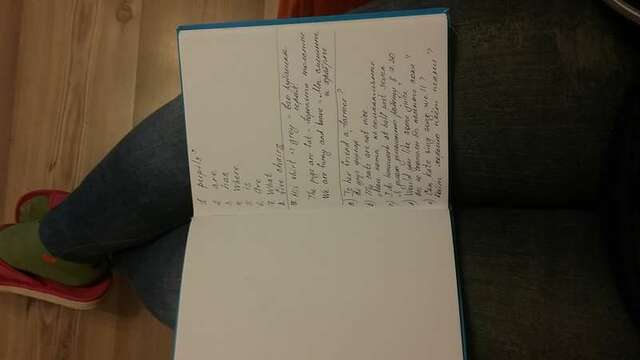 1. pupils
2. are
3. has
4. Where
5. is
6. Are
7. What
8. five chairs
9. His shirt is grey - Его рубашка
серая
The pigs are fat -
We are funny and brave - Мы смешные
и храбрые
a) Is her friend a farmer?
Её друг фермер?
b) My cats are not nice
Мои кошки не
c) I do homework at half past seven
Я делаю домашнюю работу в 7.30
d) Would you like some juice?
Вы не
e) Can Kate sing songs well?
Кейт хорошо поёт песни?